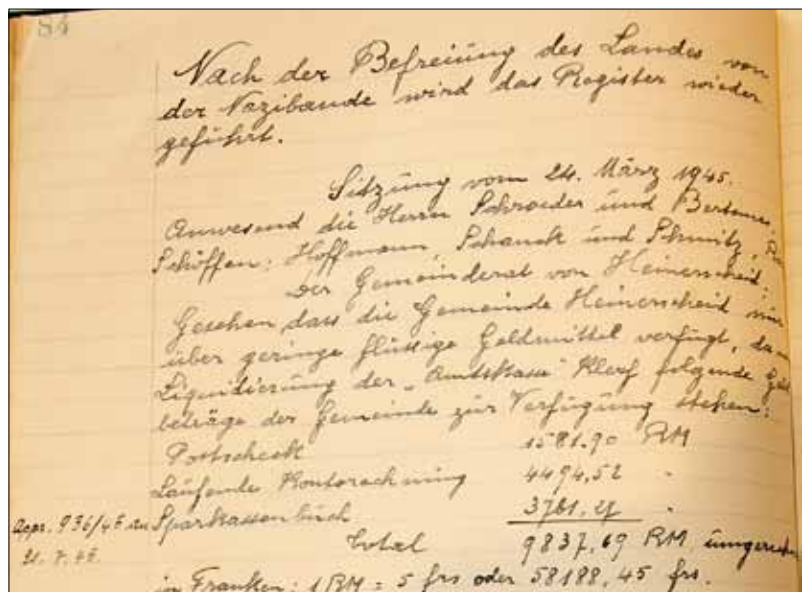 84
Nach der Befreiung des Landes von
der Nazibande wird das Register wieder
geführt.
Sitzung vom 24. März 1945.
Anwesend die Herrn Schroeder und Bertemes,
Schöffen; Hoffmann, Schanck und Schmitz,
Der Gemeinderat von Heinerscheid;
Gesehen dass die Gemeinde Heinerscheid nur
über geringe flüssige Geldmittel verfügt, da
Liquidierung der „Amtskasse" Klerf folgende Geld
beträge der Gemeinde zur Verfügung stehen:
Postscheck 1581.90 RM
Laufende Kontorechnung 4494,52 "
appr. 936/45 Sparkassenbuch 3761,27 "
21. 7. 45. Total 9837,69 RM umgerechn
in Franken: 1 RM = 5 frs oder 58188,45 frs.